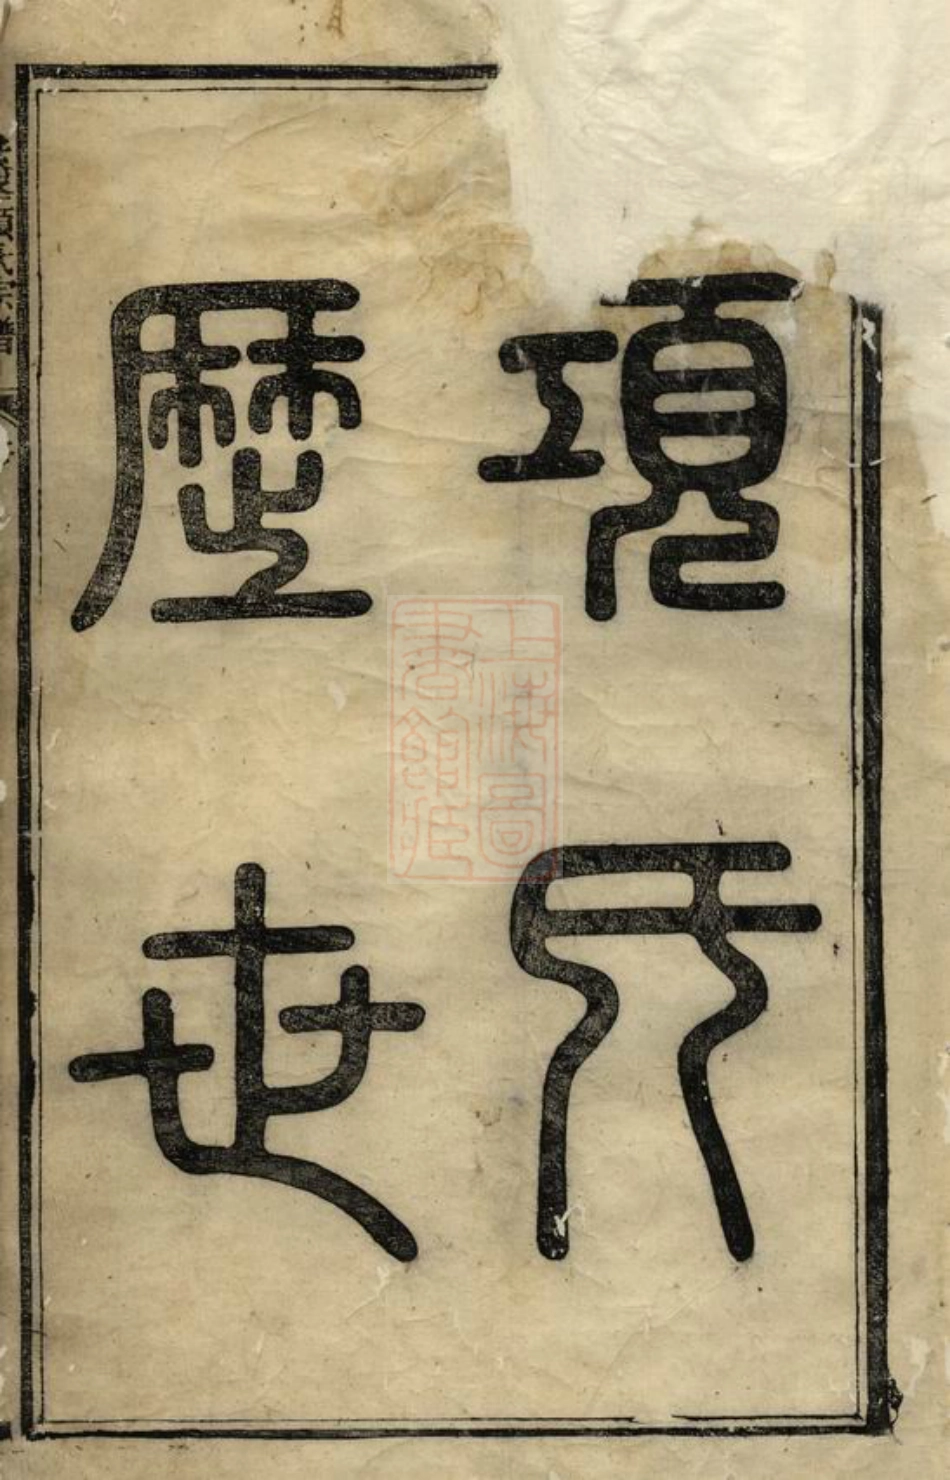 項氏
歷世
上海圖
書館藏